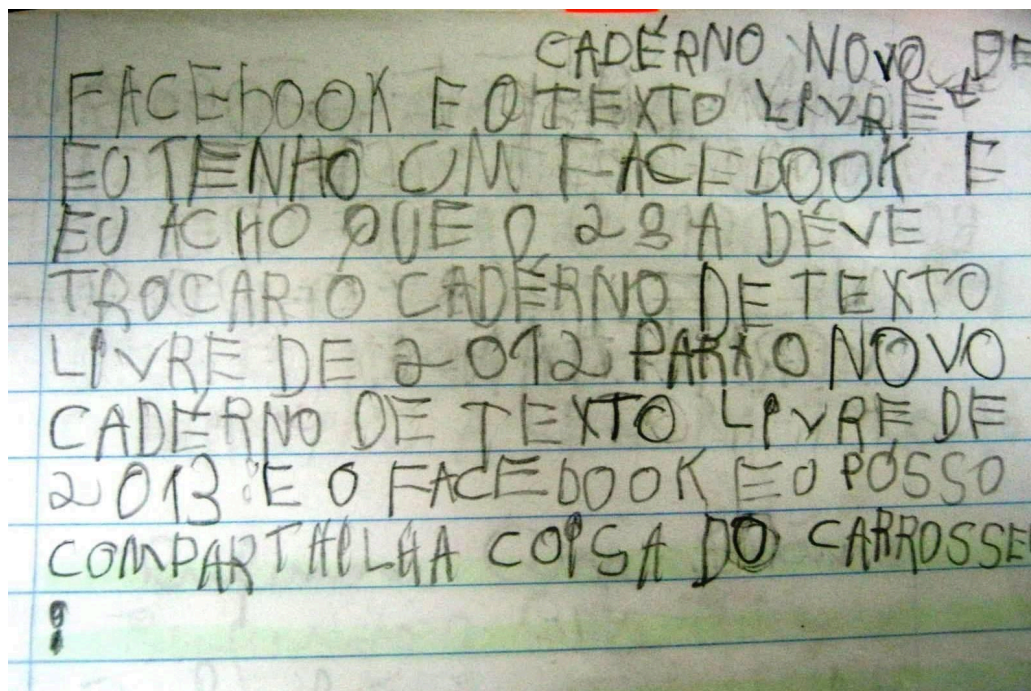 CADÉRNO NOVO DE
FACEbOOK E O TEXTO LIVRE
EU TENHO UM FACEBOOK E
EU ACHO QUE O 2º A DÉVE
TROCAR O CADÉRNO DE TEXTO
LIVRE DE 2012 PARA O NOVO
CADÉRNO DE TEXTO LIVRE DE
2013 E O FACEBOOK EU PÓSSO
COMPARTHILHA COISA DO CARROSSEL
!